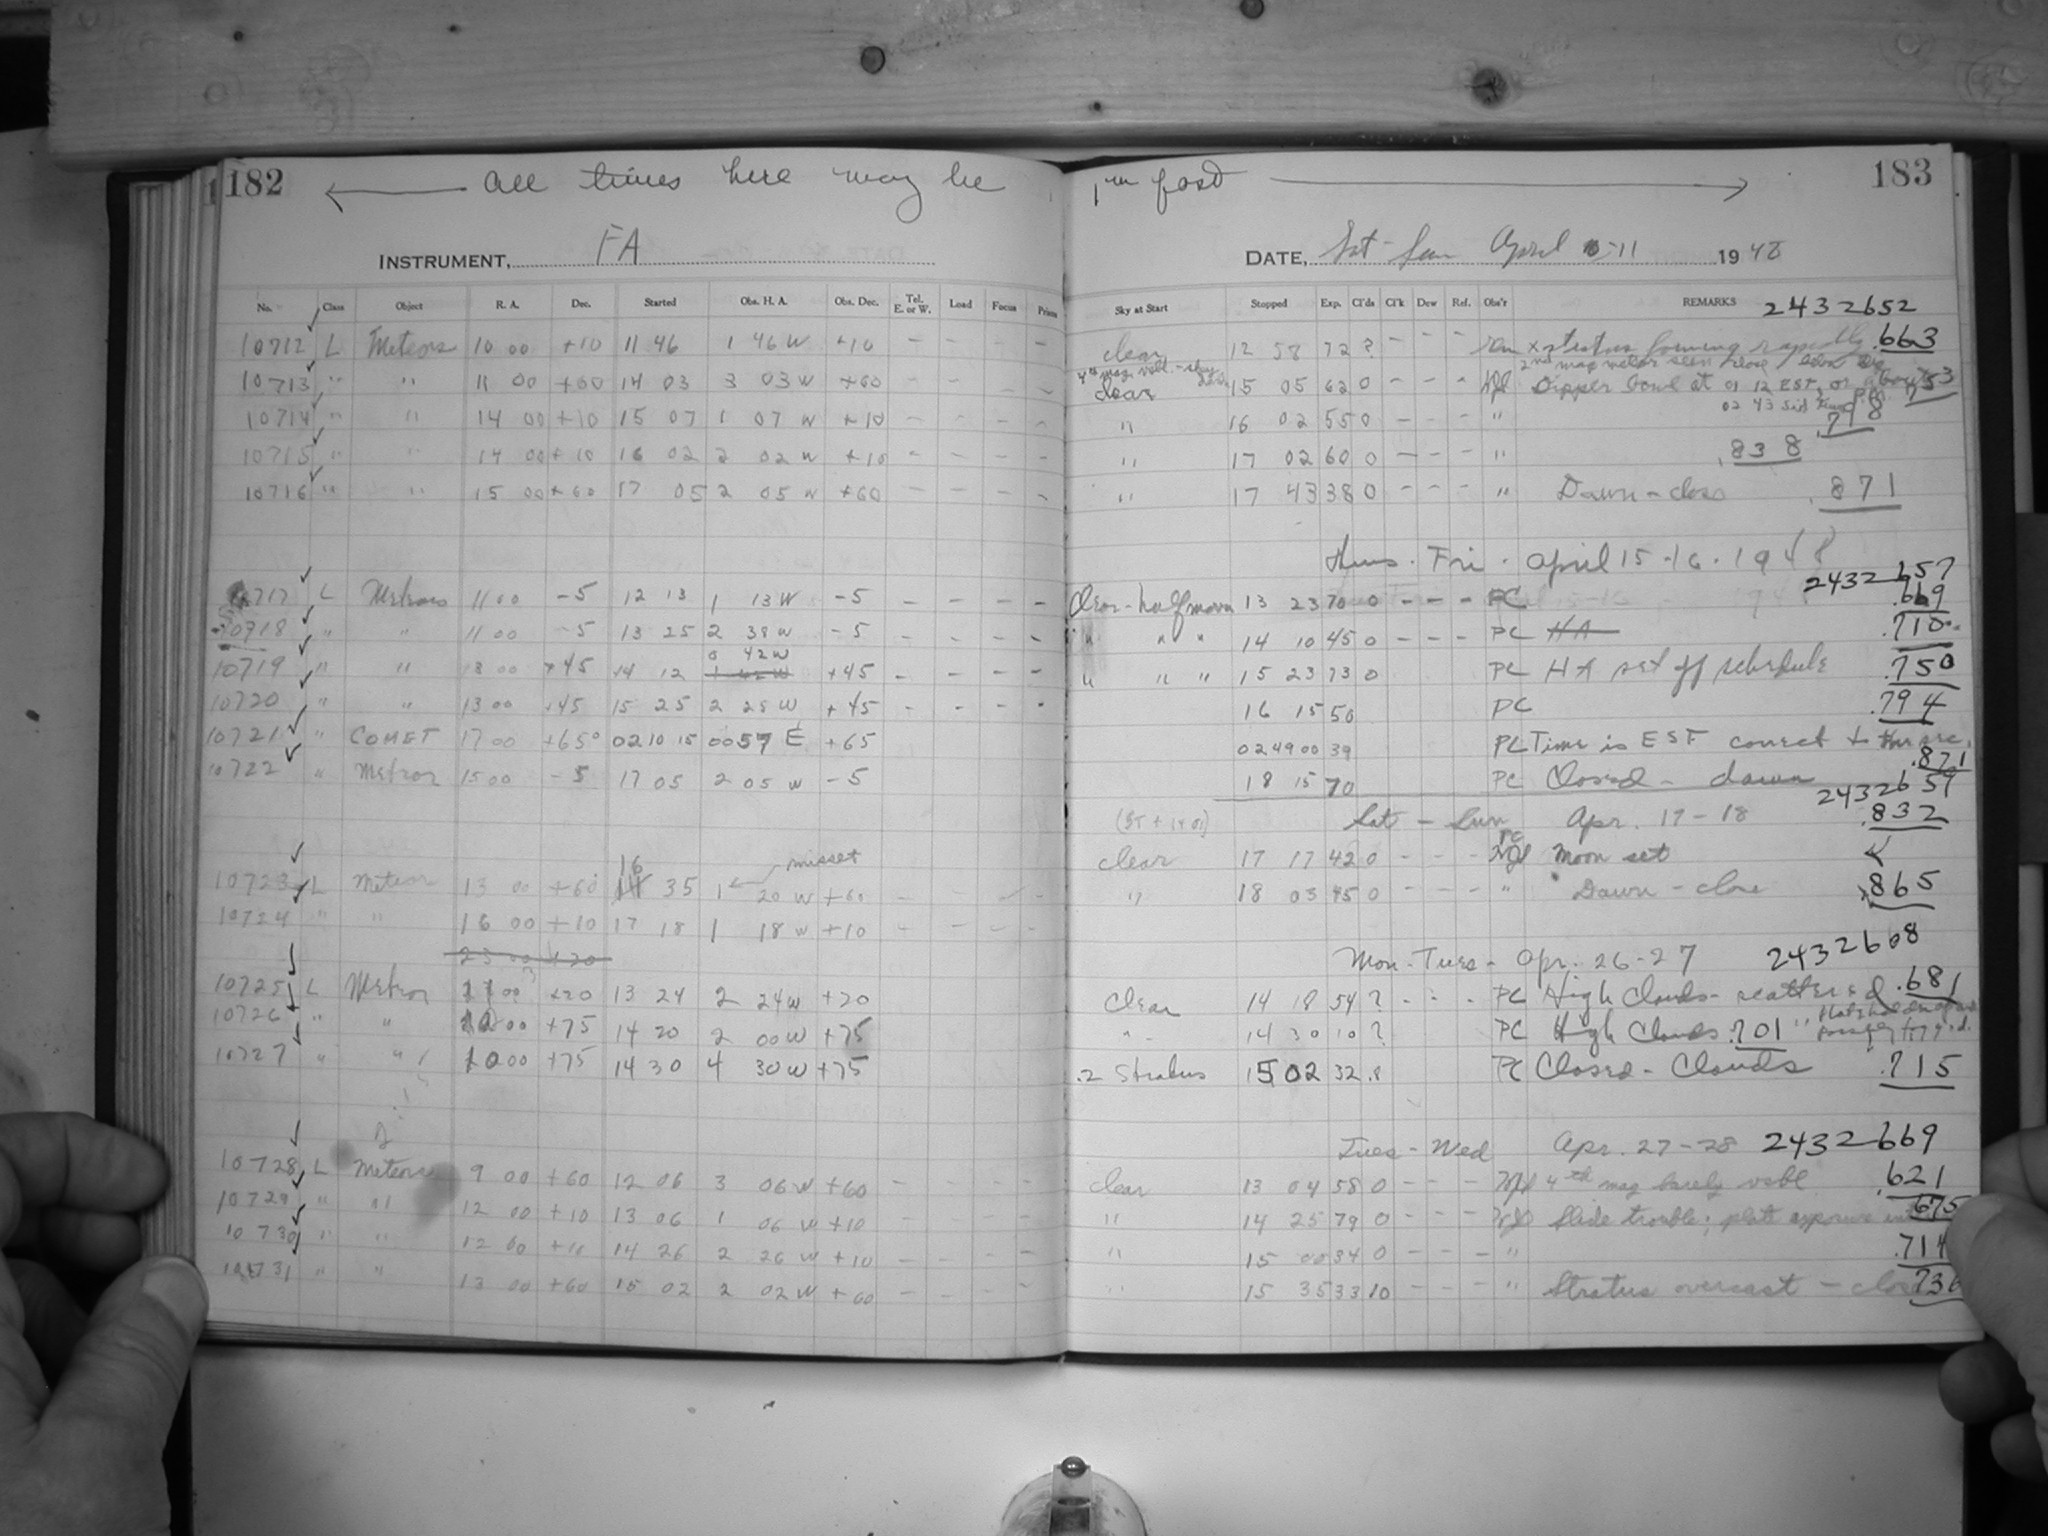 182 ← All times here may be 1m fast → 183
INSTRUMENT, FA DATE, Sat - Sun April 10-11 1948
No. Class Object R. A. Dec. Started Obs. H. A. Obs. Dec. Tel. E. or W. Load Focus Prism Sky at Start Stopped Exp. Cl'ds Cl'k Dew Ref. Obs'r REMARKS 2432652
10712 L Meteors 10 00 +10 11 46 1 46 W +10 - - - - clear 12 58 72 ? - - - stratus forming rapidly .663
4th mag vsbl. - sky 2nd mag meteor seen close
10713 " " 11 00 +60 14 03 3 03 W +60 - - - - clear 15 05 62 0 - - - Dipper bowl at 01 12 EST, or about .753
02 43 Sid Time
10714 " " 14 00 +10 15 07 1 07 W +10 - - - - " 16 02 55 0 - - - " .798
10715 " " 14 00 +10 16 02 2 02 W +10 - - - - " 17 02 60 0 - - - " .838
10716 " " 15 00 +60 17 05 2 05 W +60 - - - - " 17 43 38 0 - - - " Dawn - close .871
Thurs. Fri. April 15-16. 1948
2432657
10717 L Meteors 11 00 -5 12 13 1 13 W -5 - - - - Clear - half moon 13 23 70 0 - - - PC .669
10718 " " 11 00 -5 13 25 2 38 W -5 - - - - " " " 14 10 45 0 - - - PC HA .710
0 42 W
10719 " " 13 00 +45 14 12 1 42 W +45 - - - - " " " 15 23 73 0 PC HA set off schedule .750
10720 " " 13 00 +45 15 25 2 25 W +45 - - - - 16 15 50 PC .794
10721 " COMET 17 00 +65° 02 10 15 00 57 E +65 02 49 00 39 PC Time is EST correct to the sec.
10722 " Meteor 15 00 -5 17 05 2 05 W -5 18 15 70 PC Closed - dawn .871
2432659
(ST + 1m 01) Sat - Sun Apr. 17-18 .832
16 misset PC
10723 L Meteor 13 00 +60 14 35 1 20 W +60 - - - - clear 17 17 42 0 - - - Moon set
10724 " " 16 00 +10 17 18 1 18 W +10 - - - - " 18 03 45 0 - - - " Dawn - close .865
23 00 +20 Mon - Tues - Apr. 26-27 2432608
10725 L Meteor 11 00 +20 13 24 2 24 W +20 Clear 14 18 54 ? - - - PC High Clouds - scattered .681
10726 " " 12 00 +75 14 20 2 00 W +75 " 14 30 10 ? PC High Clouds .701
10727 " " 10 00 +75 14 30 4 30 W +75 .2 Stratus 15 02 32 .8 PC Closed - Clouds .715
Tues - Wed Apr. 27-28 2432669
10728 L Meteors 9 00 +60 12 06 3 06 W +60 - - - - clear 13 04 58 0 - - - 4th mag barely vsbl .621
10729 " " 12 00 +10 13 06 1 06 W +10 - - - - " 14 25 79 0 - - - Slide trouble; plate exposure .675
10730 " " 12 00 +10 14 26 2 26 W +10 - - - - " 15 00 34 0 - - - " .714
10731 " " 13 00 +60 15 02 2 02 W +60 - - - - " 15 35 33 10 - - - " Stratus overcast - close .736